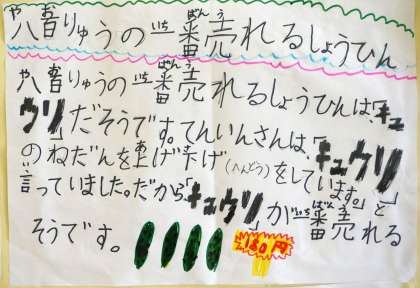 八百りゅうの一番売れるしょうひん
八百りゅうの一番売れるしょうひんは、「キュ
ウリ」だそうです。てんいんさんは、「キュウリ
のねだんを上げ下げ(へんどう)をしています。」と
言っていました。だから「キュウリ」が一番売れる
そうです。
180円